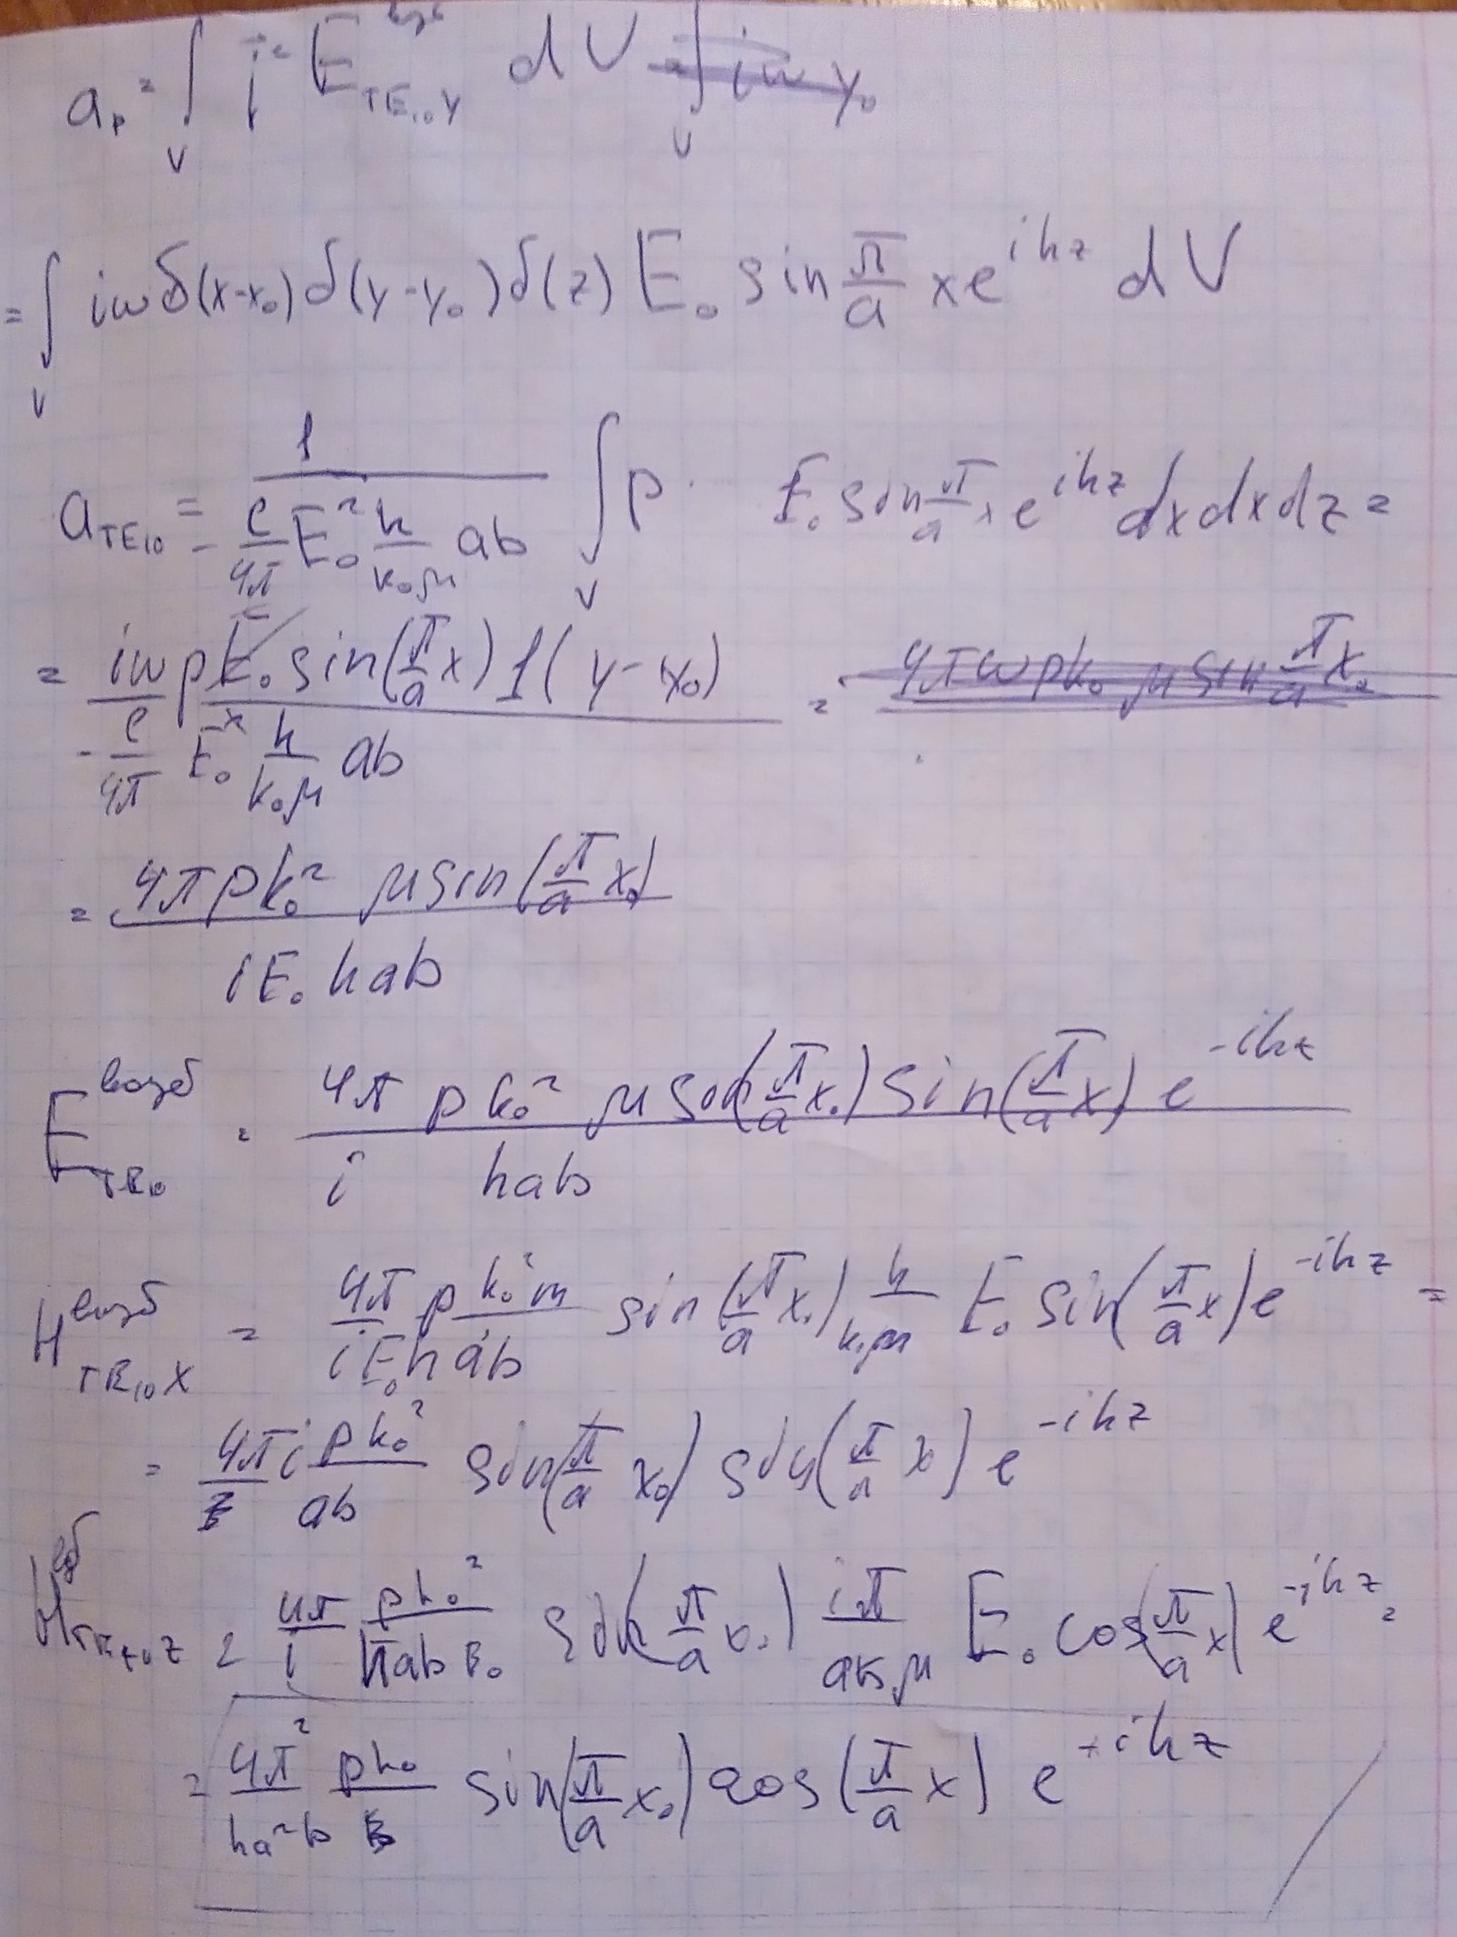 a_p = ∫_V j^e E_{TE_{10} y}^{возб} dV
= ∫_V iω δ(x-x_0) δ(y-y_0) δ(z) E_0 sin π/a x e^{ihz} dV
a_{TE_{10}} = 1 / (- c/4π E_0^2 h/(k_0 μ) ab) ∫_V p · E_0 sin π/a x e^{ihz} dx dx dz =
= iω p E_0 sin(π/a x) 1(y-y_0) / (- c/4π E_0^2 h/(k_0 μ) ab) =
= 4π p k_0^2 μ sin(π/a x_0) / (i E_0 h ab)
E_{TE_{10}}^{возб} = 4π p k_0^2 μ sin(π/a x_0) sin(π/a x) e^{-ihz} / (i h ab)
H_{TE_{10} x}^{возб} = 4π/(i E_0) p k_0^2 m / (h ab) sin(π/a x_0) h/(k_0 μ) E_0 sin(π/a x) e^{-ihz} =
= 4π i p k_0^2 / ab sin(π/a x_0) sin(π/a x) e^{-ihz}
H_{TE_{10} z} = 4π/i p k_0^2 / (h ab E_0) sin(π/a x_0) iπ/(a k_0 μ) E_0 cos(π/a x) e^{-ihz} =
= 4π^2/(h a^2 b) p k_0 sin(π/a x_0) cos(π/a x) e^{-ihz}